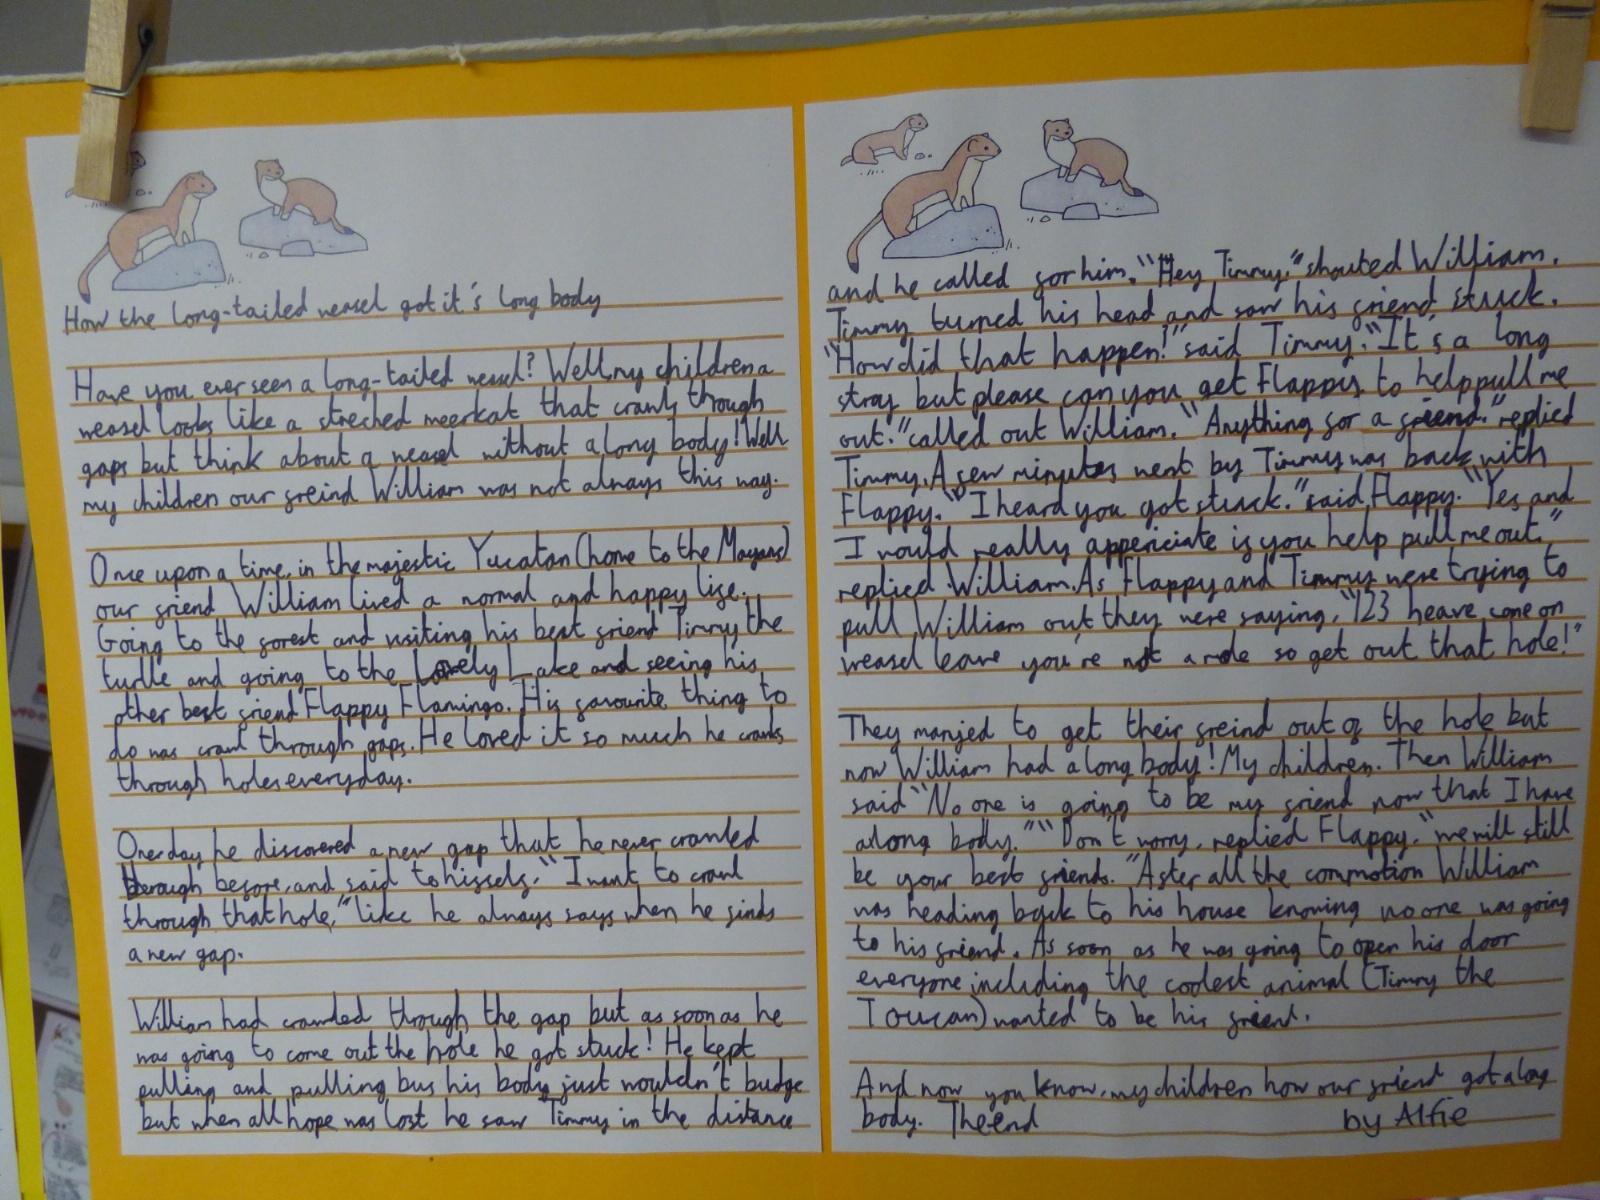 How the long-tailed weasel got it's long body
Have you ever seen a long-tailed weasel? Well, my children a
weasel looks like a streched meerkat that crawls through
gaps but think about a weasel without a long body! Well
my children our freind William was not always this way.
Once upon a time, in the majestic Yucatan (home to the Mayans)
our friend William lived a normal and happy life.
Going to the forest and visiting his best friend Timmy the
turtle and going to the Lovely Lake and seeing his
other best friend Flappy Flamingo. His favourite thing to
do was crawl through gaps. He loved it so much he crawls
through holes everyday.
One day he discovered a new gap that he never crawled
through before, and said to hisself, "I want to crawl
through that hole," like he always says when he finds
a new gap.
William had crawled through the gap but as soon as he
was going to come out the hole he got stuck! He kept
pulling and pulling but his body just wouldn't budge
but when all hope was lost he saw Timmy in the distance
and he called for him. "Hey Timmy," shouted William.
Timmy turned his head and saw his friend stuck.
"How did that happen!" said Timmy. "It's a long
story but please can you get Flappy to help pull me
out." called out William. "Anything for a friend." replied
Timmy. A few minutes went by Timmy was back with
Flappy. "I heard you got stuck." said Flappy. "Yes and
I would really appericiate if you help pull me out."
replied William. As Flappy and Timmy were trying to
pull William out, they were saying, "123 heave come on
weasel leave you're not a mole so get out that hole!"
They manjed to get their freind out of the hole but
now William had a long body! My children. Then William
said "No one is going to be my friend now that I have
a long body." "Don't worry, replied Flappy, "we will still
be your best friends." After all the commotion William
was heading back to his house knowing no one was going
to his friend. As soon as he was going to open his door
everyone including the coolest animal (Timmy the
Toucan) wanted to be his friend.
And now you know, my children how our friend got a long
body. The end by Alfie